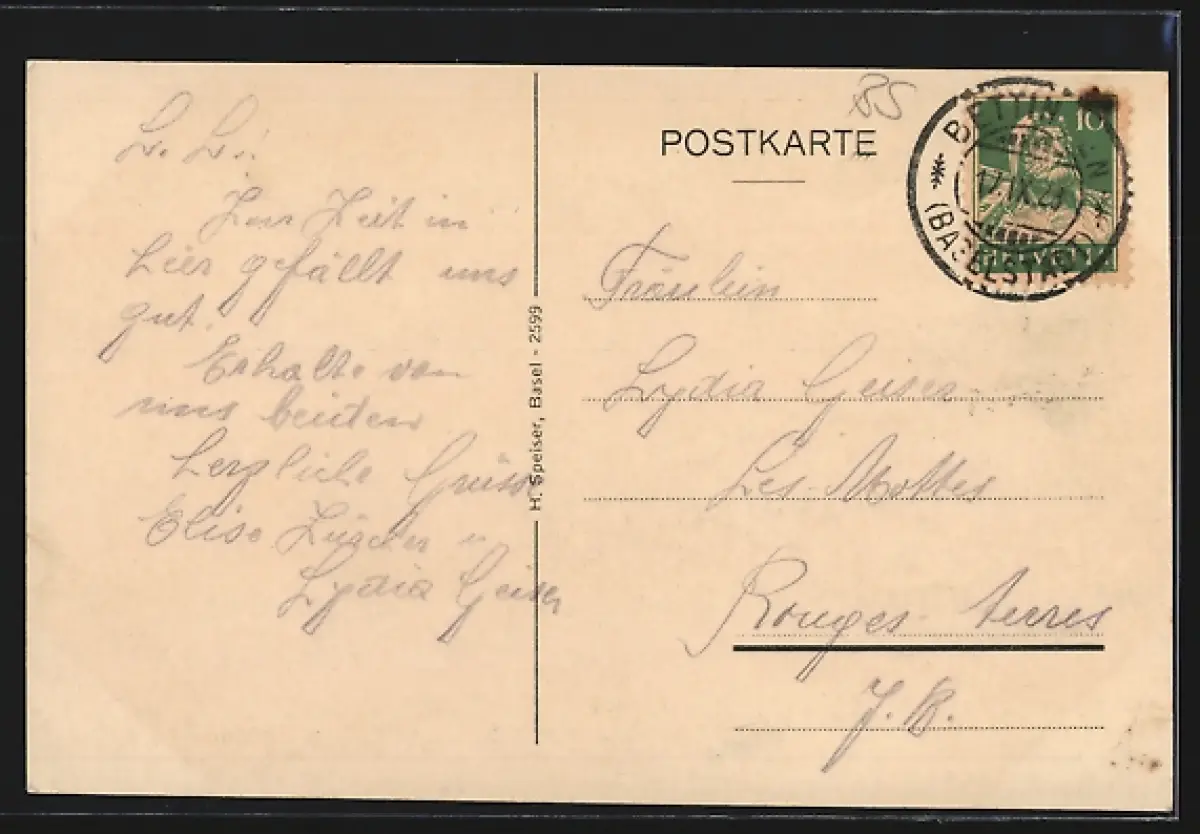 BS
POSTKARTE
10
HELVETIA
BETTINGEN
17.IX.2
(BASELSTADT)
L. L.
Zeit in
hier gefällt uns
gut.
Erhalte von
uns beiden
herzliche Grüsse
Elise Lüscher u
Lydia Geiser
H. Speiser, Basel - 2599
Fräulein
Lydia Geiser
Les Mottes
Rouges-terres
J. B.